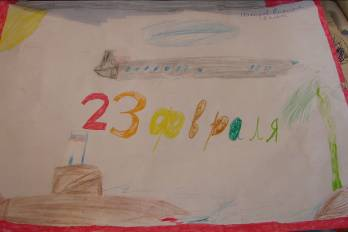 23 февраля